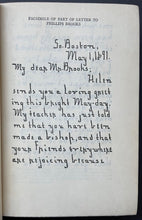 FACSIMILE OF PART OF LETTER TO
PHILLIPS BROOKS
So. Boston,
May 1, 1891.
My dear Mr. Brooks:
Helen
sends you a loving greet
ing this bright May-day.
My teacher has just told
me that you have been
made a bishop, and that
your friends everywhere
are rejoicing because